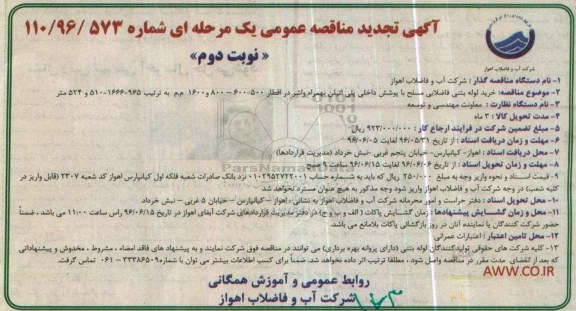 آگهی تجدید مناقصه عمومی یک مرحله ای شماره ۵۷۳ /۱۱۰/۹۶
« نوبت دوم»
شرکت آب و فاضلاب اهواز
۱- نام دستگاه مناقصه گذار : شرکت آب و فاضلاب اهواز
۲- موضوع مناقصه: خرید لوله بتنی فاضلابی مسلح با پوشش داخلی پلی اتیلن بهمراه واشر در اقطار ۵۰۰-۶۰۰ – ۸۰۰ و ۱۶۰۰ م.م به ترتیب ۹۶۵-۱۶۶۶-۵۱۰ و ۵۲۴ متر
۳- نام دستگاه نظارت : معاونت مهندسی و توسعه
۴- مدت تحویل کالا : ۳ ماه
۵- مبلغ تضمین شرکت در فرایند ارجاع کار : ۹۲۳/۰۰۰/۰۰۰ ریال
۶- مهلت و زمان دریافت اسناد : از تاریخ ۹۶/۰۵/۳۱ لغایت ۹۶/۰۶/۰۵
۷- محل دریافت اسناد : اهواز- کیانپارس- خیابان پنجم غربی -نبش خرداد (مدیریت قراردادها)
۸- مهلت و زمان تحویل اسناد : از تاریخ ۹۶/۰۶/۰۶ لغایت ۹۶/۰۶/۱۵ ساعت ۹ صبح
۹- قیمت اسناد و نحوه واریز وجه به مبلغ ۲۵۰/۰۰۰ ریال که باید به شماره حساب ۰۱۰۲۹۵۲۷۲۲۰۰۱ نزد بانک صادرات شعبه فلکه اول کیانپارس اهواز کد شعبه ۲۳۰۷ (قابل واریز در کلیه شعب) در وجه شرکت آب و فاضلاب اهواز واریز شود وجه مذکور به هیچ عنوان مسترد نخواهد شد
۱۰- محل تحویل اسناد : دفتر حراست و امور محرمانه شرکت آب و فاضلاب اهواز به نشانی : اهواز – کیانپارس – خیابان ۵ غربی – نبش خرداد
۱۱- محل و زمان گشایش پیشنهادها : زمان گشایش پاکات ( الف و ب و ج) در دفتر مدیریت قراردادهای شرکت آبفای اهواز در تاریخ ۹۶/۰۶/۱۵ راس ساعت ۱۱:۰۰ می باشد ، ضمناً حضور کلیه شرکت کنندگان یا نماینده آنان در روز بازگشائی پاکات بلامانع می باشد
۱۲- محل تامین اعتبار : اعتبارات عمرانی
۱۳- کلیه شرکت های حقوقی تولیدکنندگان لوله بتنی (دارای پروانه بهره برداری) می توانند در مناقصه فوق شرکت نمایند و به پیشنهاد های فاقد امضاء ، مشروط ، مخدوش و پیشنهاداتی که بعد از انقضای مدت مقرر در مناقصه واصل شود ، مطلقا ترتیب اثر داده نخواهد شد. ضمناً برای کسب اطلاعات بیشتر می توان با شماره ۳۳۳۸۶۵۰۹ - ۰۶۱ تماس گرفت.
روابط عمومی و آموزش همگانی
شرکت آب و فاضلاب اهواز
AWW.CO.IR
ParsNamadData